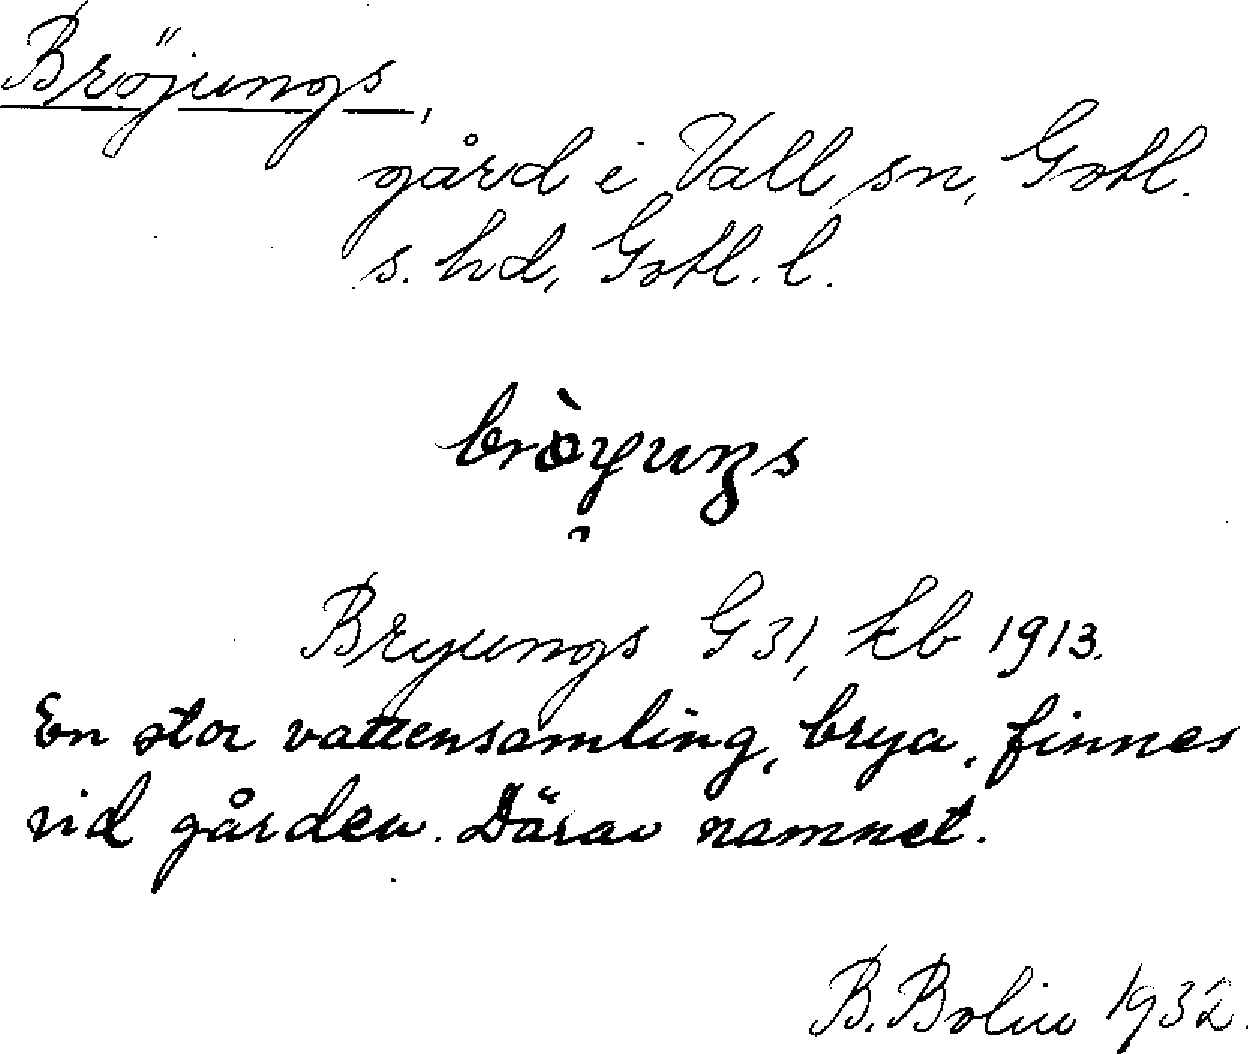 Bröjungs,
gård i Vall sn, Gotl.
s. hd, Gotl. l.
bròyuŋs
Bryungs G 31, kb 1913.
En stor vattensamling, brya, finnes
vid gården. Därav namnet.
B. Bolin 1932.